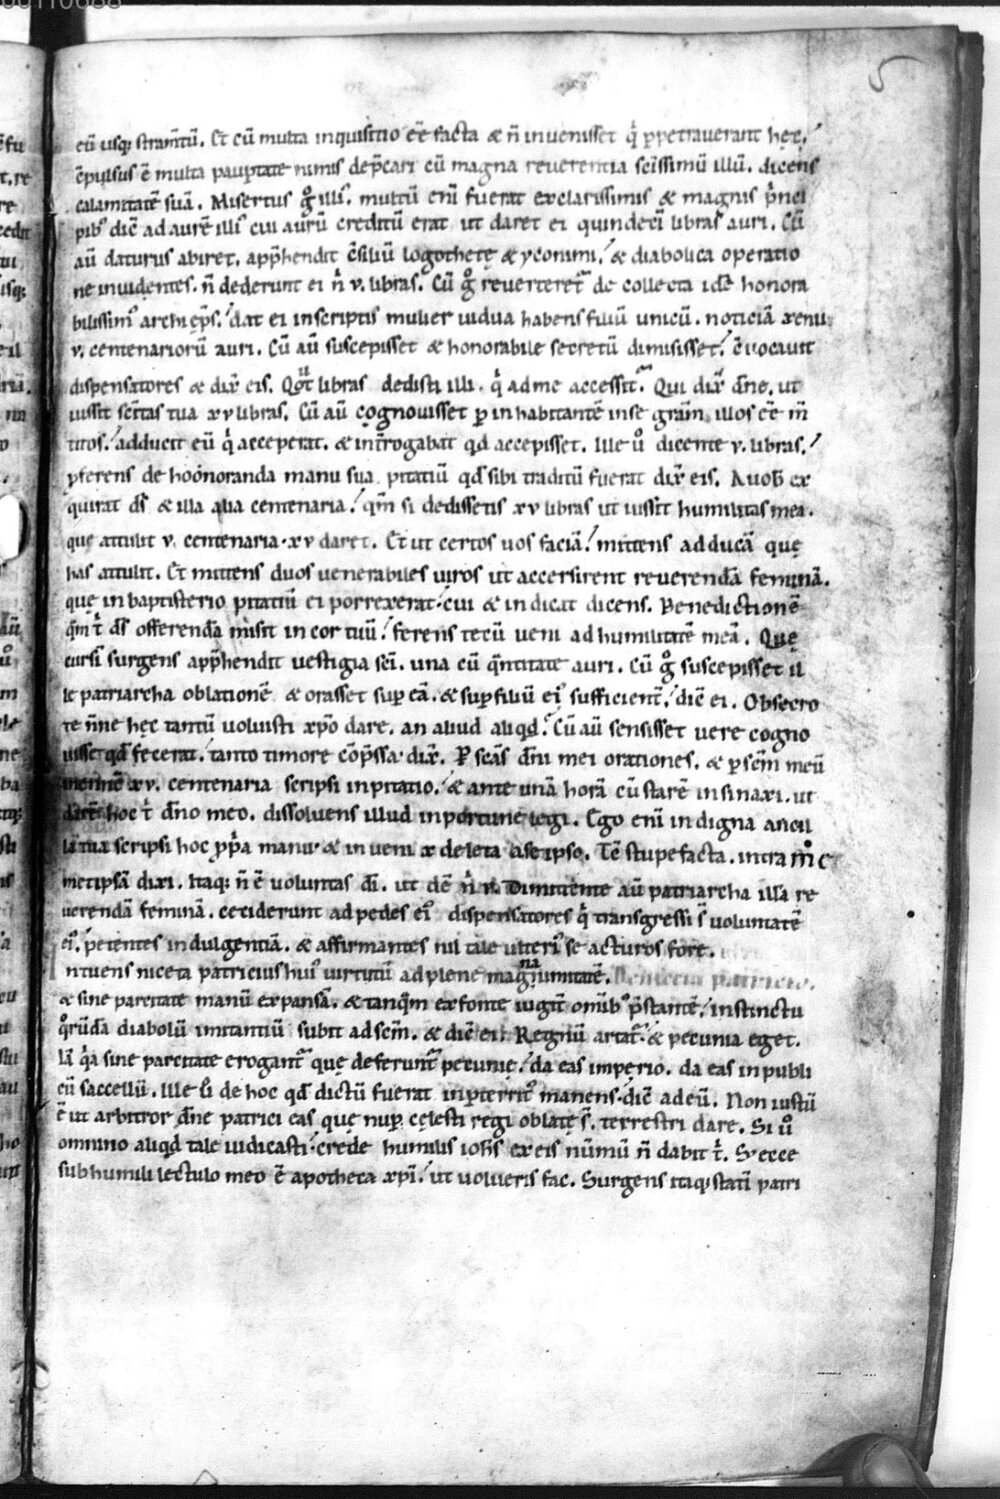 5
eū usq; stram̄tū. Et cū multa inquisitio eē facta & n̄ inuenisset q̇ ppetrauerant hęc.
ē pulsus ē multa paupitate nimis dep̄cari cū magna reuerentia sc̄issimū illū. dicens
calamitatē suā. Misertus g̊ illi. multū eni fuerat exclarissimis & magnis p̄nci
pib' dic̄ ad aurē illi' cui aurū creditū erat ut daret ei quindeci libras auri. Cū
aū daturus abiret. app̄hendit c̄siliū logothetę & yconimi. & diabolica operatio
ne inuidentes. n̄ dederunt ei n̄ v. libras. Cū g̊ reuerteret de collecta idē honora
bilissim' archiep̄s. dat ei inscriptis mulier uidua habens filiū unicū. noticiā xeniı
v. centenariorū auri. Cū aū suscepisset & honorabile secretū dimisisset. ēuocauit
dispensatores & dix̄ eis. Qot libras dedisti illi. q̇ ad me accessit. Qui dix̄ dn̄e. ut
iussit sc̄itas tua xv libras. Cū aū cognouisset p inhabitantē in se gr̄am illos eē m̄
titos. adducit eū q̇ acceperat. & int̄rogabat qd accepisset. Ille u̇ dicente v. libras.
pferens de honoranda manu sua pitatiū qd sibi traditū fuerat dix̄ eis. A uob̄ ex
quirat ds̄ & illa alia centenaria. qm̄ si dedissetis xv libras ut iussit humilitas mea.
que attulit v. centenaria. xv daret. Et ut certos uos faciā. mittens adducā que
has attulit. Et mittens duos uenerabiles uiros ut accersirent reuerendā feminā.
quę in baptisterio pitatiū ei porrexerat. cui & indicat dicens. Benedictionē
qm̄ t̄ ds̄ offerendā misit in cor tuū. ferens tecū ueni ad humilitatē meā. Quę
cursi surgens app̄hendit uestigia sc̄i. una cū q̄ntitate auri. Cū g̊ suscepisset il
le patriarcha oblationē & orasset sup eā. & sup filiū ei' sufficient. dic̄ ei. Obsecro
te n̄ne hęc tantū uoluisti xp̄o dare. an aliud aliqd. Cū aū sensisset uere cogno
uisse qd fecerat. tanto timore cōp̄ssa. dix̄. P sc̄as dn̄i mei orationes. & p sc̄m meū
xv. centenaria scripsi in pitatio. & ante unā horā cū starē in sinaxi. ut
darē hoc t̄ dn̄o meo. dissoluens illud inportune legi. Ego eni indigna ancil
la tua scripsi hoc pp̄a manu. & inueni x deleta a se ipso. Tē stupefacta. intra m̊ e
metipsā dixi. Itaq; n̄ ē uoluntas di. ut dē n̄ v. Dimittente aū patriarcha illā re
uerendā feminā. ceciderunt ad pedes ei' dispensatores q̇ transgressi s̄ uoluntatē
ei'. petentes indulgentiā. & affirmantes nil tale ulteri' se acturos fore.
Intuens niceta patricius hui' uirtutū ad plene magnanimitatē. De niceta patricio.
& sine parcitate manū expansā. & tanqm̄ ex fonte iugit omib' p̄stantē. instinctu
q̊rūdā diabolū imitantiū subit ad sc̄m. & dic̄ ei. Regnū artat. & pecunia eget.
Iā q̇a sine parcitate erogant que deferunt pecunię. da eas imperio. da eas in publi
cū saccellū. Ille u̇ de hoc qd dictū fuerat inperterrit' manens. dic̄ ad eū. Non iustū
ē ut arbitror dn̄e patrici eas quę nup cęlesti regi oblatę s̄. terrestri dare. Si u̇
omnino aliqd tale iudicasti. crede humilis ioh̄s ex eis nūmū n̄ dabit t̄. S; ecce
sub humili lectulo meo ē apotheca xp̄i. ut uolueris fac. Surgens itaq; statī patri